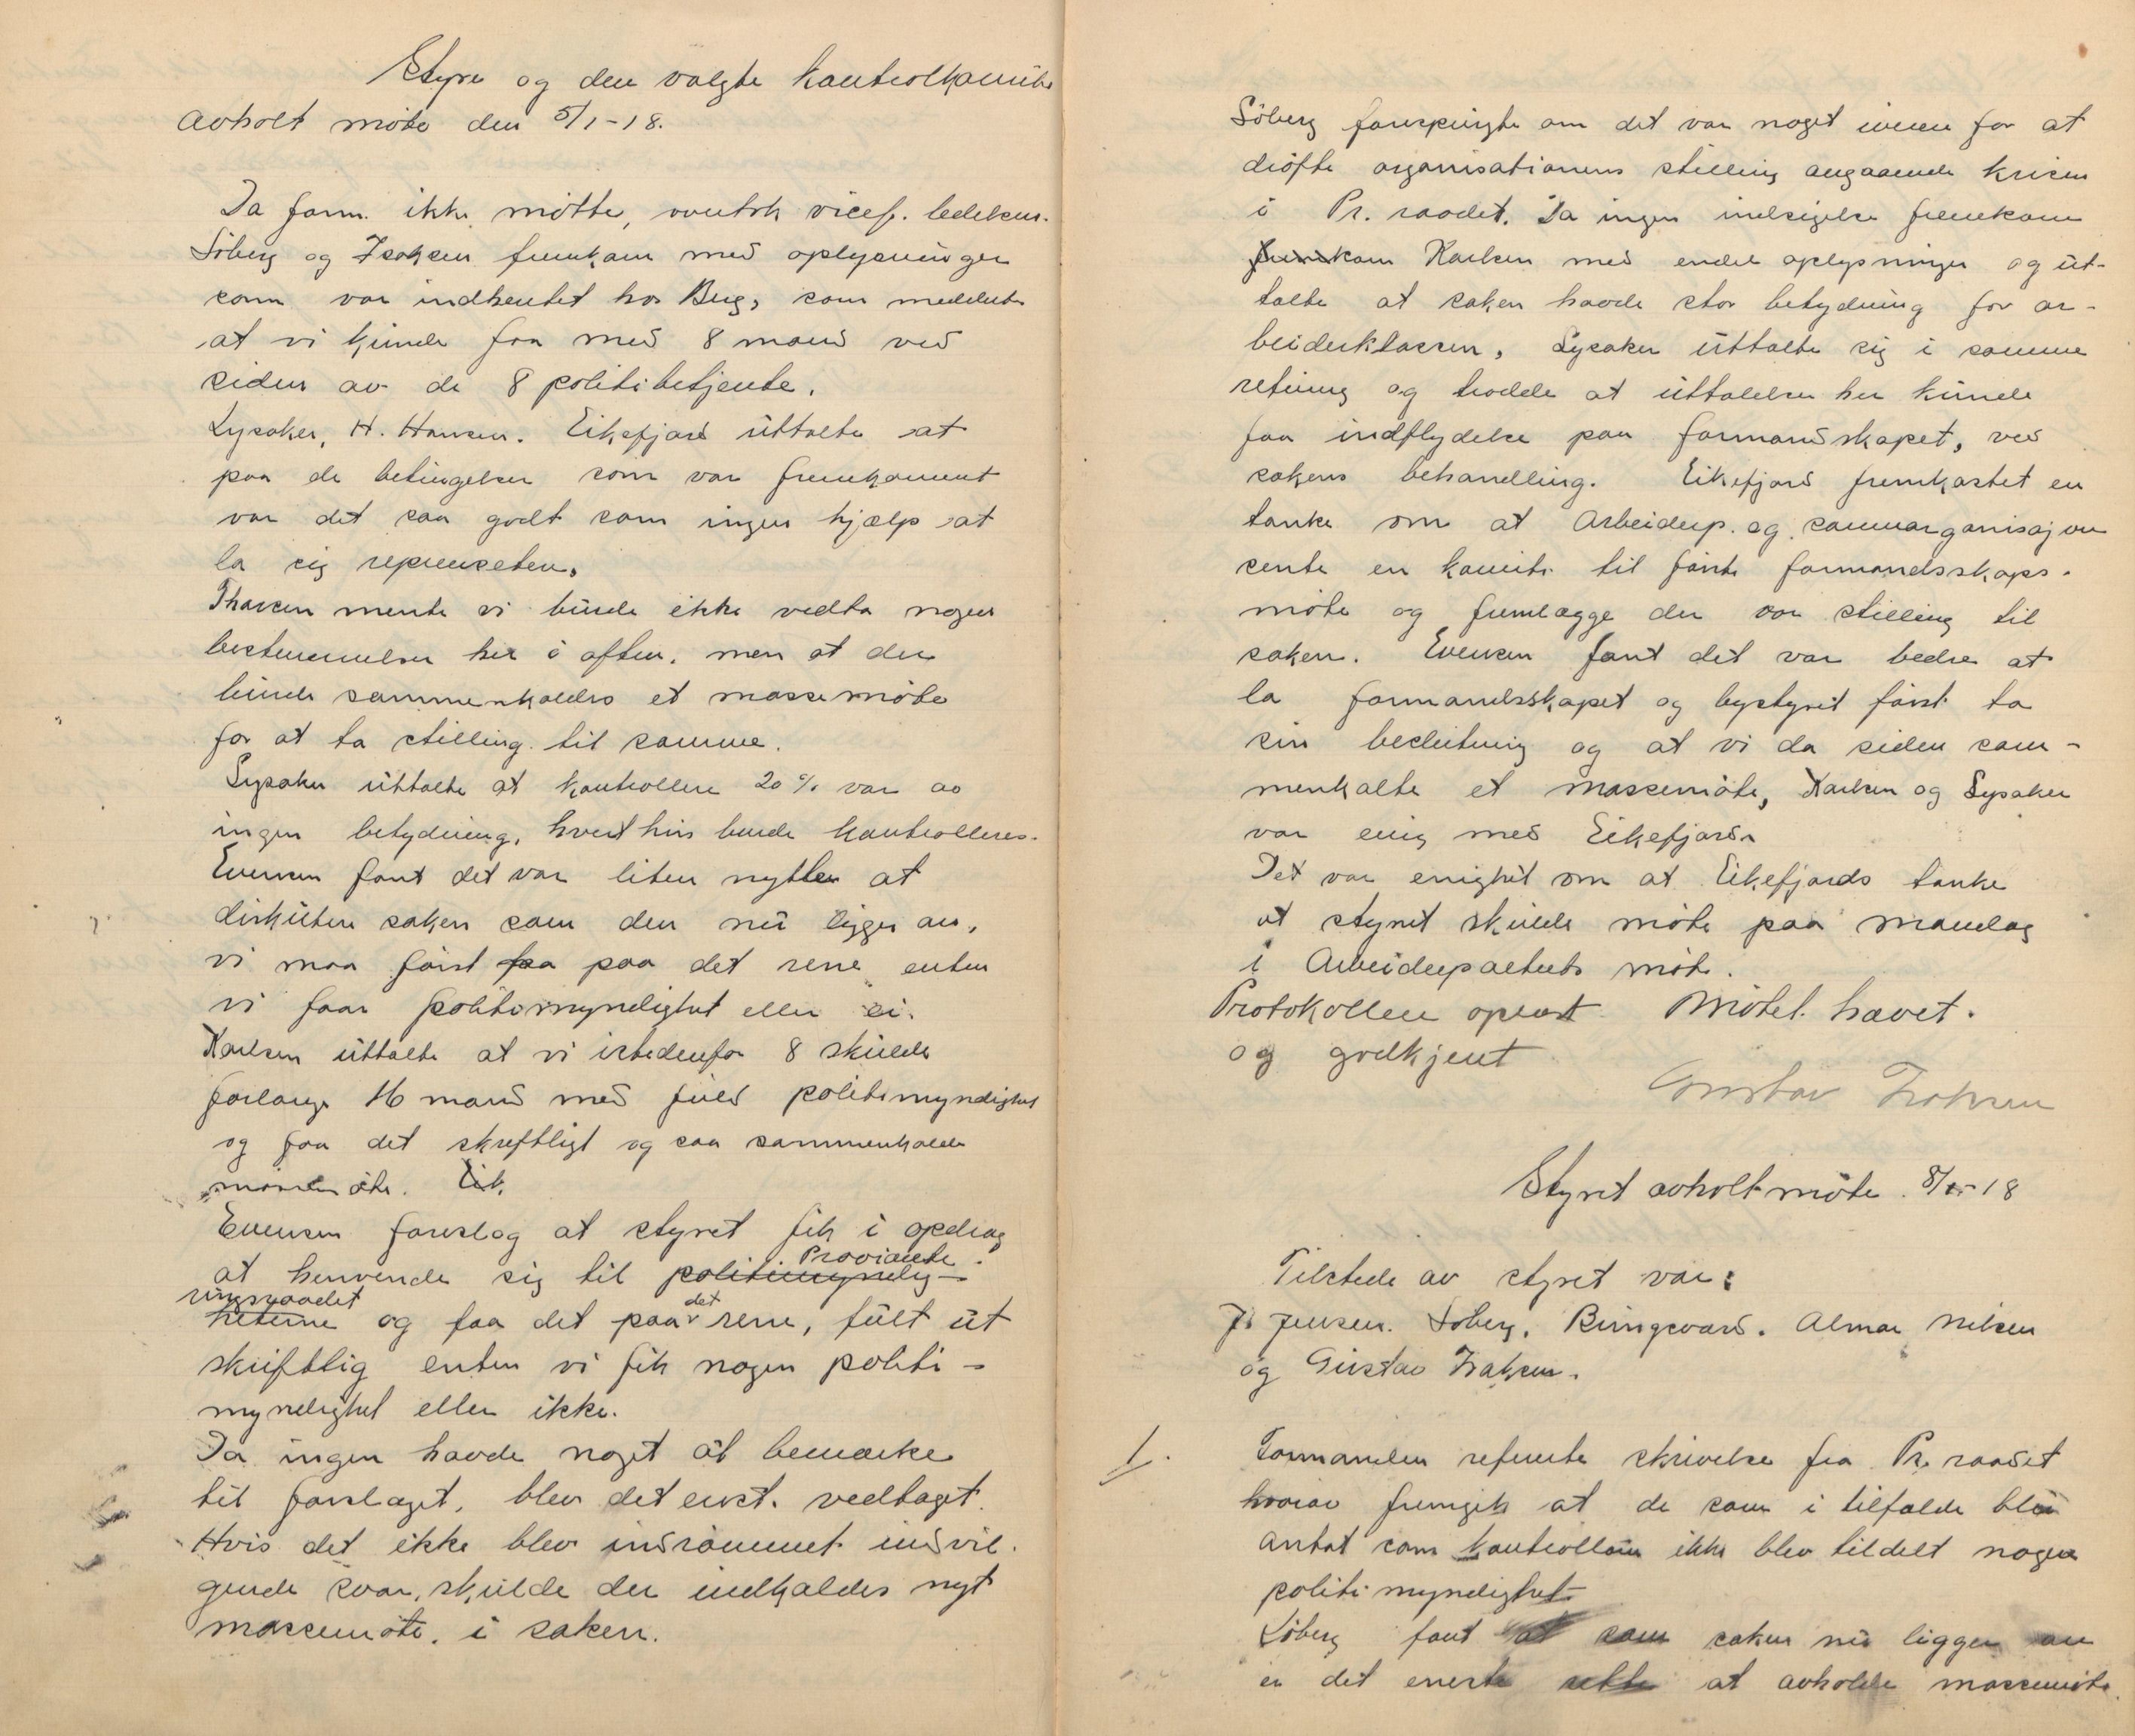 Styre og den valgte kontrolkomite
avholt möte den 5/1-18.
Da form. ikke mötte, overtok vicef. ledelsen.
Söberg og Isaksen fremkom med oplysninger
som var indhentet hos Berg, som meddelte
at vi kunde faa med 8 mand ved
siden av de 8 politibetjente.
Lysaker, H. Hansen. Eikefjord uttalte at
paa de betingelser som var fremkommet
var det saa godt som ingen hjælp at
la sig represeten.
Thorsen mente vi burde ikke vedta nogen
bestemmelser her i aften. men at der
burde sammenkaldes et massemöte
for at ta stilling til samme.
Lysaker uttalte at kontrollere 20 % var av
ingen betydning, hvert hus burde kontrolleres.
Evensen fant det var liten nytten at
diskutere saken som den nu ligger an,
vi maa först faa paa det rene enten
vi faar politimyndighet eller ei.
Karlsen uttalte at vi istedenfor 8 skulde
forlange 16 mand med fuld politimyndighet
og faa det skreftligt og saa sammenkalde
massemöte. Eik.
Evensen foreslog at styret fik i opdrag
at henvende sig til politimyndig- Proviante
heterne ringsraadet og faa det paa det rene, fult ut
skriftlig enten vi fik nogen politi-
myndighet eller ikke.
Da ingen havde noget at bemærke
til forslaget, blev det enst. vedtaget.
Hvis det ikke blev indrömmet indvil-
gende svar, skulde der indkaldes nyt
massemöte. i saken.
Söberg forespurgte om det var noget iveien for at
dröfte organisationens stilling angaaende krisen
i Pr. raadet. Da ingen indsigelse fremkom
fremkom Karlsen med endel oplysninger og ut-
talte at saken havde stor betydning for ar-
beiderklassen. Lysaker uttalte sig i samme
retning og trodde at uttalelser her kunde
faa indflydelse paa formandskapet, ved
sakens behandling. Eikefjord fremkastet en
tanke om at Arbeiderp. og samorganisajon
sente en komite til förste formandsskaps-
möte og fremlægge der vor stilling til
saken. Evensen fant det var bedre at
la formandsskapet og bystyret först ta
sin beslutning og at vi da siden sam-
menkalte et massemöte, Karlsen og Lysaker
var enig med Eikefjord.
Det var enighet om at Eikefjords tanke
at styret skulde möte paa mandag
i Arbeiderpartiets möte.
Protokollen oplæst Mötet hævet.
og godkjent
Gustav Isaksen
Styret avholt möte. 8/1-18
Tilstede av styret var:
J. Jensen. Söberg. Ringsvard. Almar Nilsen
og Gustav Isaksen.
1. Formanden referete skrivelse fra Pr. raadet
hvorav fremgik at de som i tilfælde blei
antat som kontrollörn ikke blev tildelt nogen
politimyndighet
Söberg fant at som saken nu ligger an
er det eneste rette at avholde massemöte.